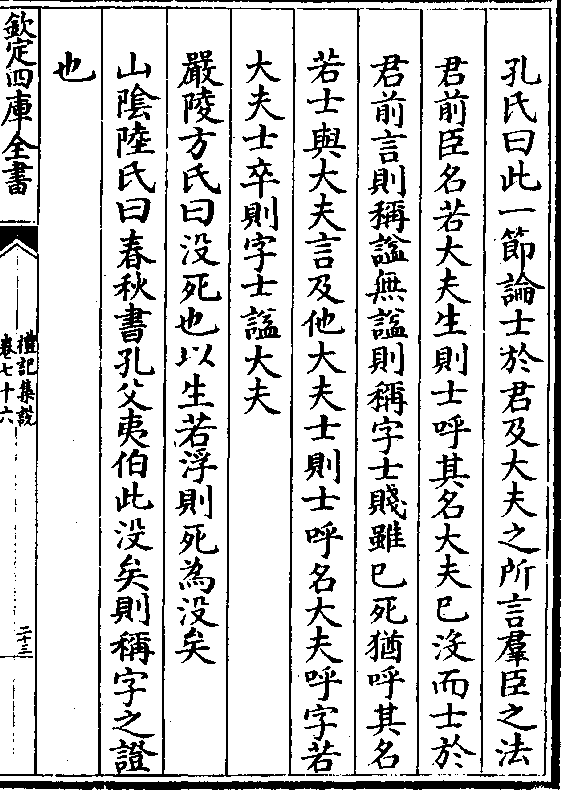 孔氏曰此一節論士於君及大夫之所言羣臣之法
君前臣名若大夫生則士呼其名大夫已沒而士於
君前言則稱諡無諡則稱字士賤雖已死猶呼其名
若士與大夫言及他大夫士則士呼名大夫呼字若
大夫士卒則字士諡大夫
嚴陵方氏曰沒死也以生若浮則死為沒矣
山陰陸氏曰春秋書孔父夷伯此沒矣則稱字之證
也
欽定四庫全書
禮記集說
卷七十六
二十三